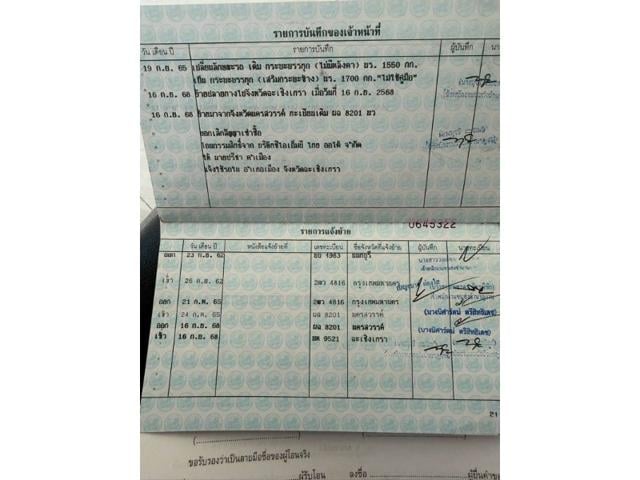 รายการบันทึกของเจ้าหน้าที่
วัน เดือน ปี รายการบันทึก ผู้บันทึก
19 ก.ย. 65 เปลี่ยนลักษณะรถ เดิม กระบะบรรทุก (ไม่มีหลังคา) นร. 1550 กก.
เป็น กระบะบรรทุก (เสริมกระบะข้าง) นร. 1700 กก. "ไม่ใช้คู่มือ"
16 ก.ย. 68 ย้ายปลายทางไปจังหวัดฉะเชิงเทรา เมื่อวันที่ 16 ก.ย. 2568
16 ก.ย. 68 ย้ายมาจากจังหวัดนครสวรรค์ ทะเบียนเดิม ผฉ 8201 นว
ยกเลิกสัญญาเช่าซื้อ
โอนกรรมสิทธิ์จาก
จำกัด
ให้ นายปรีชา
แจ้งใช้รถใน อำเภอเมือง จังหวัดฉะเชิงเทรา
0645322
รายการแจ้งย้าย
วัน เดือน ปี หนังสือแจ้งย้ายที่ เลขทะเบียน ชื่อจังหวัดที่แจ้งย้าย ผู้บันทึก นายทะเบียน
ออก 23 ก.ย. 62 1983 ธนบุรี
เข้า 26 ก.ย. 62 2พว 4816 กรุงเทพมหานคร
ออก 21 ก.ค. 65 2พว 4816 กรุงเทพมหานคร
เข้า 24 ก.ค. 65 ผฉ 8201 นครสวรรค์ (นางนิศารัตน์ ศรีสิทธิเดช)
ออก 16 ก.ย. 68 ผฉ 8201 นครสวรรค์ (นางนิศารัตน์ ศรีสิทธิเดช)
เข้า 16 ก.ย. 68 9521 ฉะเชิงเทรา
21
ขอรับรองว่าเป็นลายมือชื่อของผู้โอนจริง
ผู้รับโอน ลงชื่อ ผู้ยื่นคำขอ